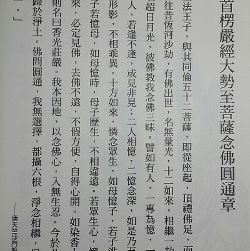 首楞嚴經大勢至菩薩念佛圓通章
法王子，與其同倫，五十二菩薩，即從座起，頂禮佛足，而
往昔恆河沙劫，有佛出世，名無量光，十二如來，相繼一
超日月光，彼佛教我念佛三昧，譬如有人，一專為憶，一
人，若逢不逢，或見非見，二人相憶，二憶念深，如是乃至
形影，不相乖異，十方如來，憐念眾生，如母憶子，若子
子若憶母，如母憶時，母子歷生，不相違遠，若眾生心，
來，必定見佛，去佛不遠，不假方便，自得心開，如染香
則名曰香光莊嚴。我本因地，以念佛心，入無生忍，今於
歸於淨土。佛問圓通，我無選擇，都攝六根，淨念相繼，
。」